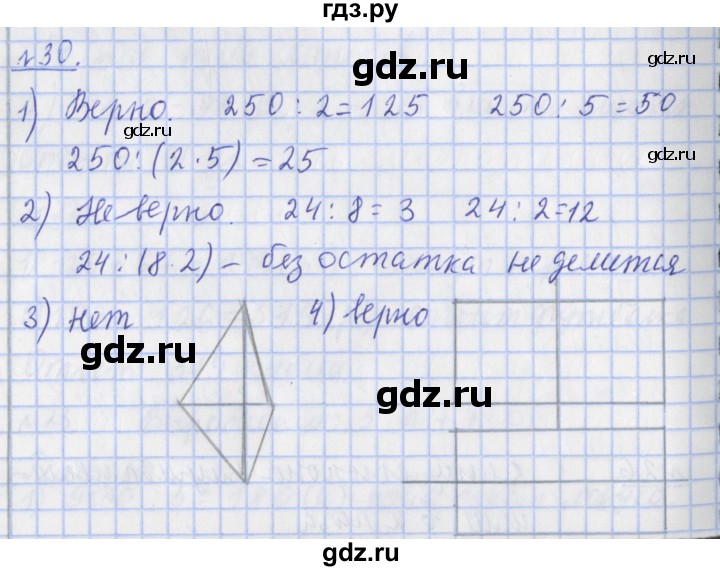 гдз.ру
№30.
gdz.ru
gdz.ru
1) Верно. 250 : 2 = 125 250 : 5 = 50
gdz.ru
250 : (2 · 5) = 25
gdz.ru
2) Неверно. 24 : 8 = 3 24 : 2 = 12
24 : (8 · 2) – без остатка не делится
3) нет 4) верно
gdz.ru
gdz.ru
gdz.ru